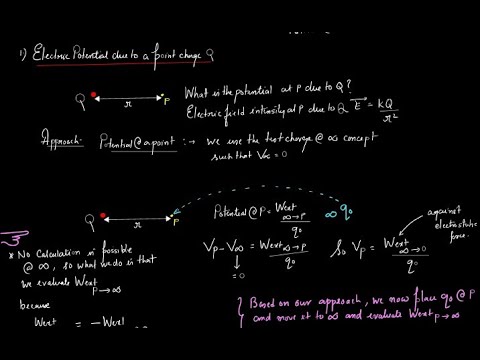 1) Electric Potential due to a point charge Q
Q r P
What is the potential at P due to Q?
Electric field intensity at P due to Q E = kQ/r²
Approach:- Potential @ a point :→ we use the test charge @ ∞ concept
such that V∞ = 0
Q r P
Potential @ P = Wext ∞→P / q₀
∞ q₀
against
electrostatic
force.
VP - V∞ = Wext ∞→P / q₀
= 0
So VP = Wext ∞→0 / q₀
* No Calculation is possible
@ ∞, so what we do is that
we evaluate Wext P→∞
because
Wext = -Wext
{ Based on our approach, we now place q₀ @ P
and move it to ∞ and evaluate Wext P→∞